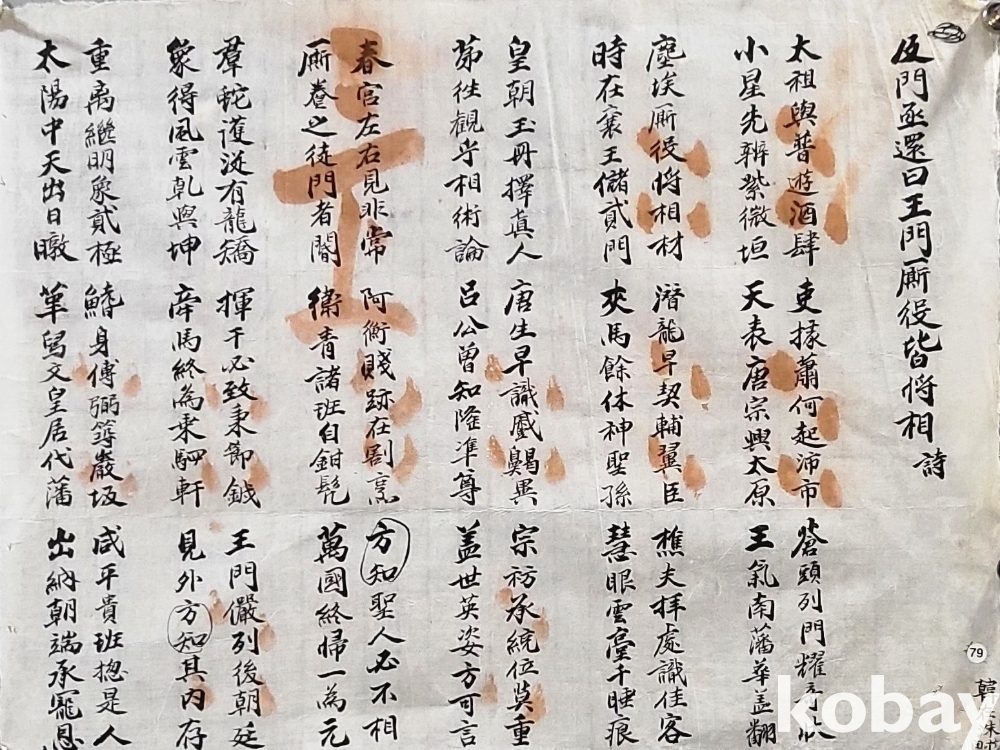 及門亟還曰王門廝役皆將相 詩
太祖與普遊酒肆 吏掾蕭何起沛市 蒼頭列門耀
小星先辨紫微垣 天表唐宗興太原 王氣南藩華盖翻
塵埃廝役將相材 潛龍早契輔翼臣 樵夫拜處識佳客
時在襄王儲貳門 夾馬餘休神聖孫 慧眼雲臺千睡痕
皇朝玉冊擇真人 唐生早識蹙齃異 宗祊承統位莫重
苐徃觀乎相術論 呂公曾知隆準尊 盖世英姿方可言
春宮左右見非常 阿衡賤跡在割烹 方知聖人必不相
廝養之徒門者閽 衛青諸班自鉗髡 萬國終歸一為元
羣蛇護涎有龍矯 揮千必致秉節鉞 王門儼列後朝廷
象得風雲乾與坤 牽馬終為乘駟軒 見外方知其內存
重离繼明象貳極 鰭身傅弼巖坂 咸平貴班揔是人
太陽中天出日暾 舄文皇居代藩 出納朝端承寵恩
79
韓
kobay